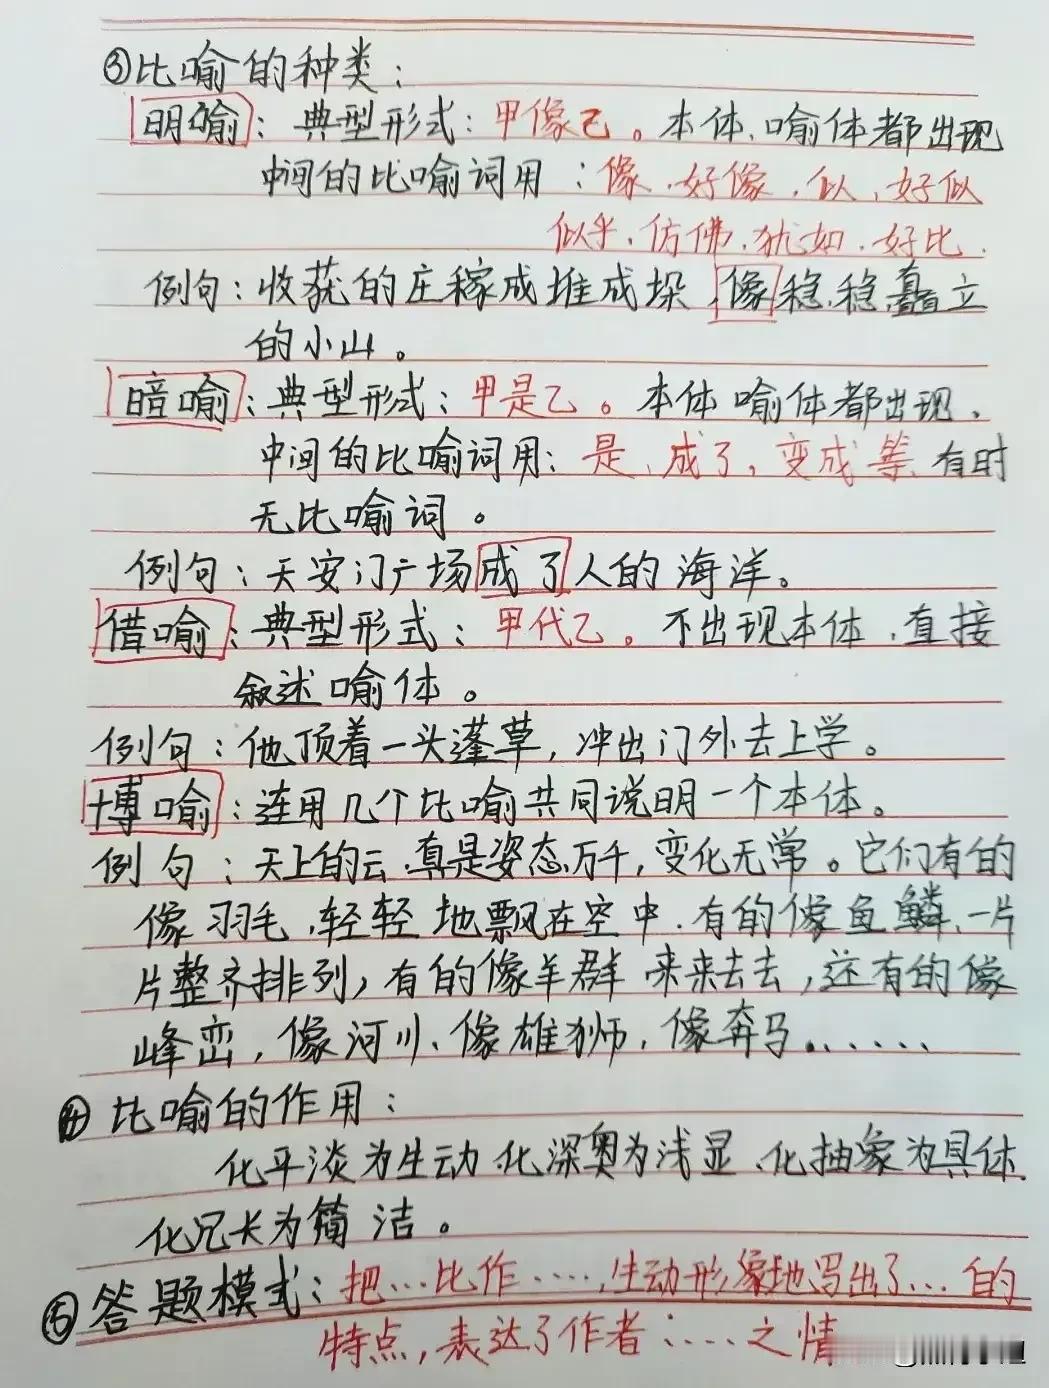 ③比喻的种类：
明喻：典型形式：甲像乙。本体、喻体都出现
中间的比喻词用：像、好像、似、好似
似乎、仿佛、犹如、好比、
例句：收获的庄稼成堆成垛，像稳稳矗立
的小山。
暗喻：典型形式：甲是乙。本体喻体都出现，
中间的比喻词用：是、成了、变成等，有时
无比喻词。
例句：天安门广场成了人的海洋。
借喻：典型形式：甲代乙。不出现本体，直接
叙述喻体。
例句：他顶着一头蓬草，冲出门外去上学。
博喻：连用几个比喻共同说明一个本体。
例句：天上的云，真是姿态万千，变化无常。它们有的
像羽毛，轻轻地飘在空中，有的像鱼鳞，一片
片整齐排列，有的像羊群来来去去，还有的像
峰峦，像河川、像雄狮，像奔马......
④比喻的作用：
化平淡为生动、化深奥为浅显、化抽象为具体、
化冗长为简洁。
⑤答题模式：把...比作....，生动形象地写出了...的
特点，表达了作者：....之情